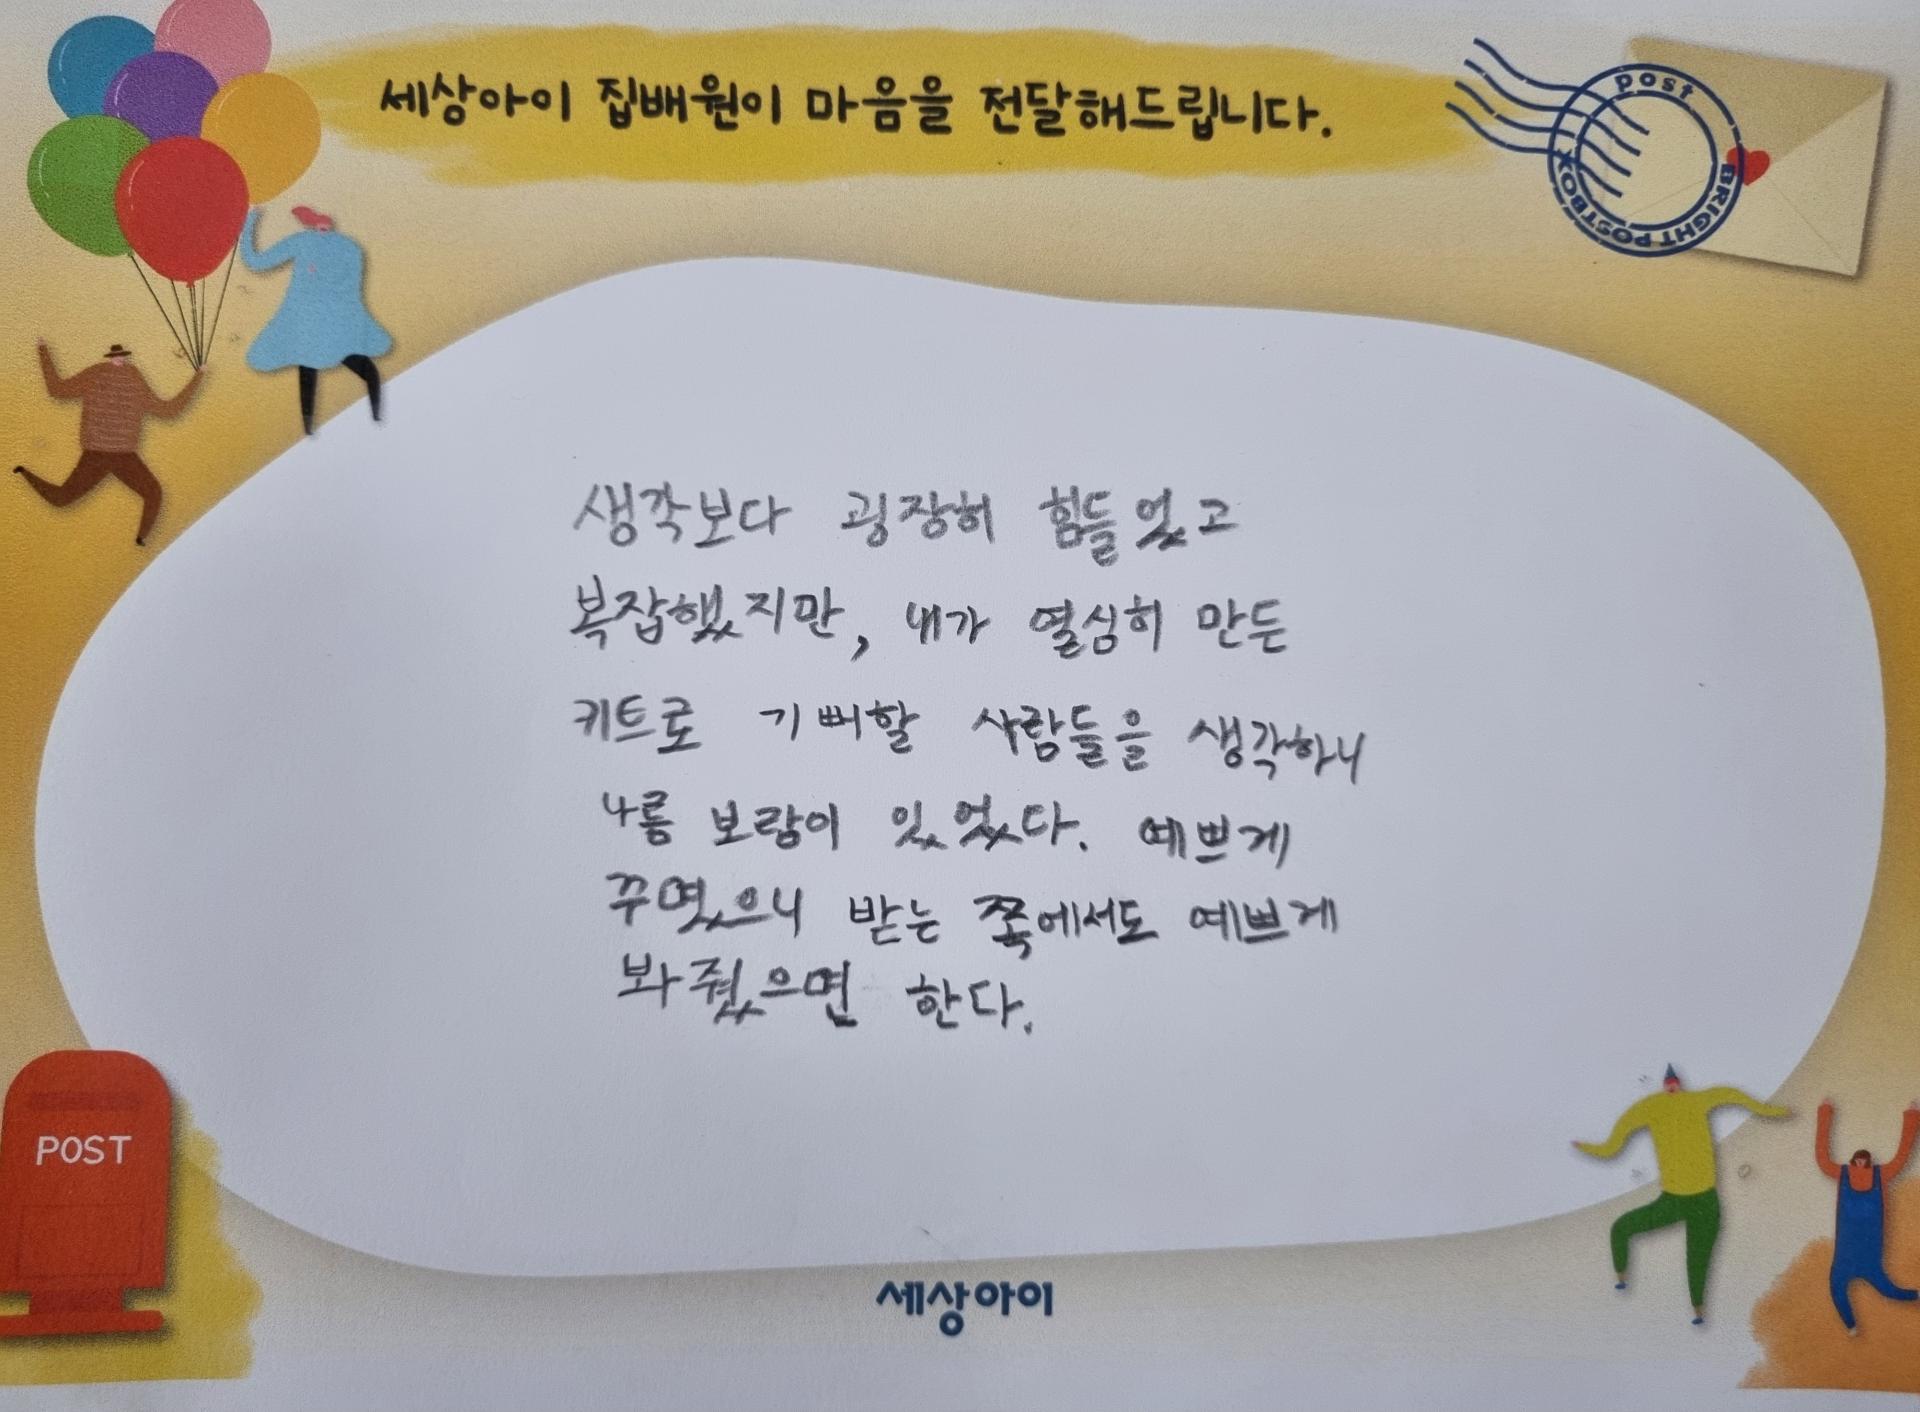 세상아이 집배원이 마음을 전달해드립니다.
post
BRIGHT POSTBOX
생각보다 굉장히 힘들었고
복잡했지만, 내가 열심히 만든
키트로 기뻐할 사람들을 생각하니
나름 보람이 있었다. 예쁘게
꾸몄으니 받는 쪽에서도 예쁘게
봐줬으면 한다.
POST
세상아이